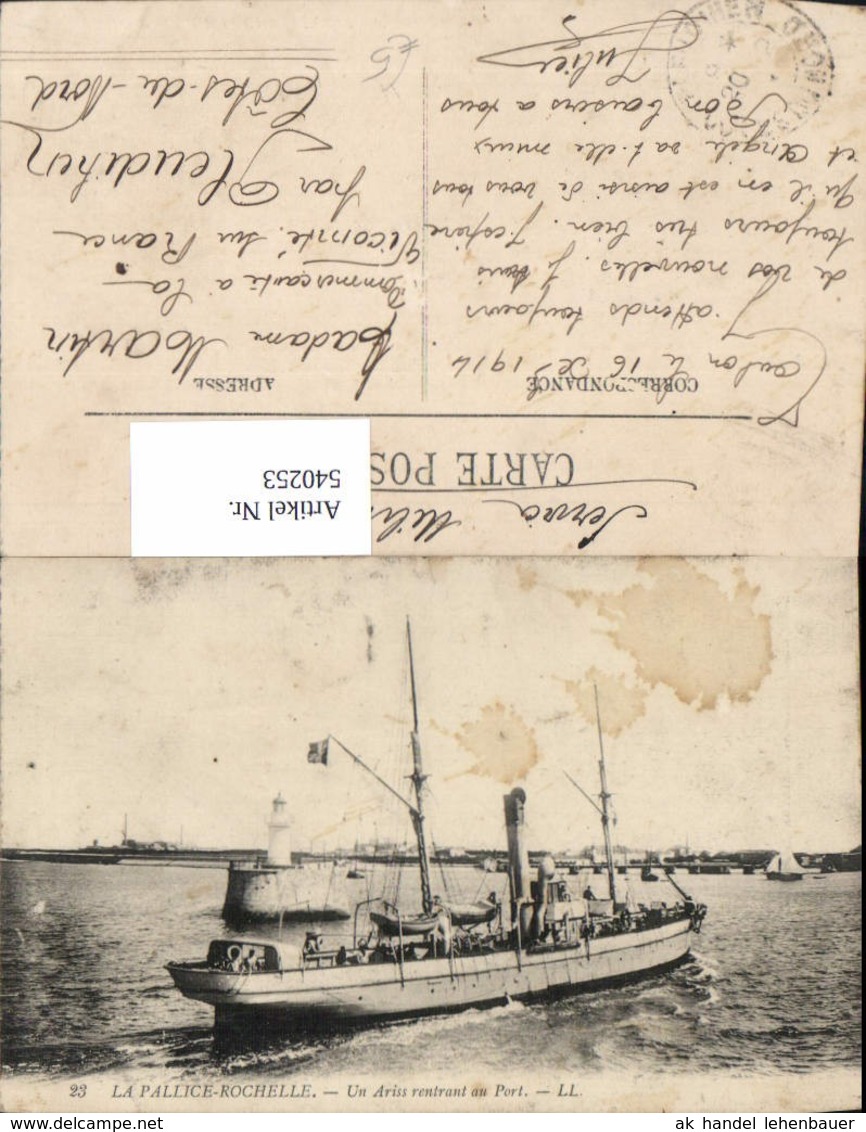 Artikel Nr.
540253
CARTE POS
CORRESPONDANCE
ADRESSE
Toulon le 16 Xe 1914
J'attends toujours
de vos nouvelles. Je suis
toujours très bien. J'espère
qu'il en est ainsi de vous tous
et Angèle va t-elle mieux
Bon baisers a tous
Julien
Madame Martin
Commerçante à la
Vicomté. sur Rance
par Pleudihen
Côtes-du-Nord
£5
23 LA PALLICE-ROCHELLE. — Un Ariss rentrant au Port. — LL.
ak handel lehenbauer